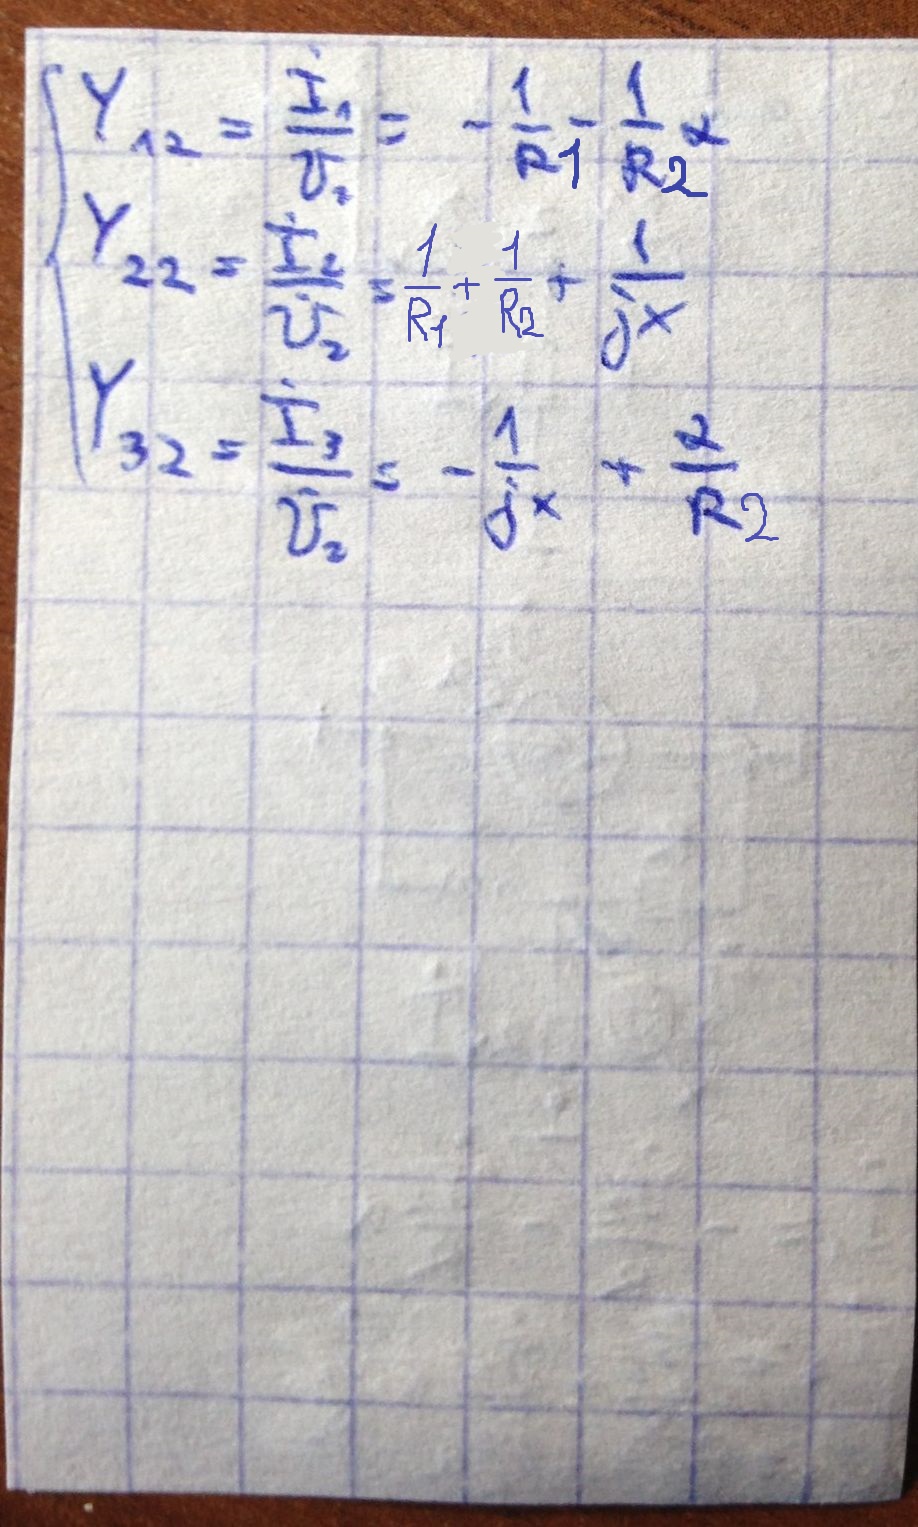 Y₁₂ = İ₁/U̇₂ = - 1/R1 - 1/R2 α
Y₂₂ = İ₂/U̇₂ = 1/R1 + 1/R2 + 1/jx
Y₃₂ = İ₃/U̇₂ = - 1/jx + α/R2